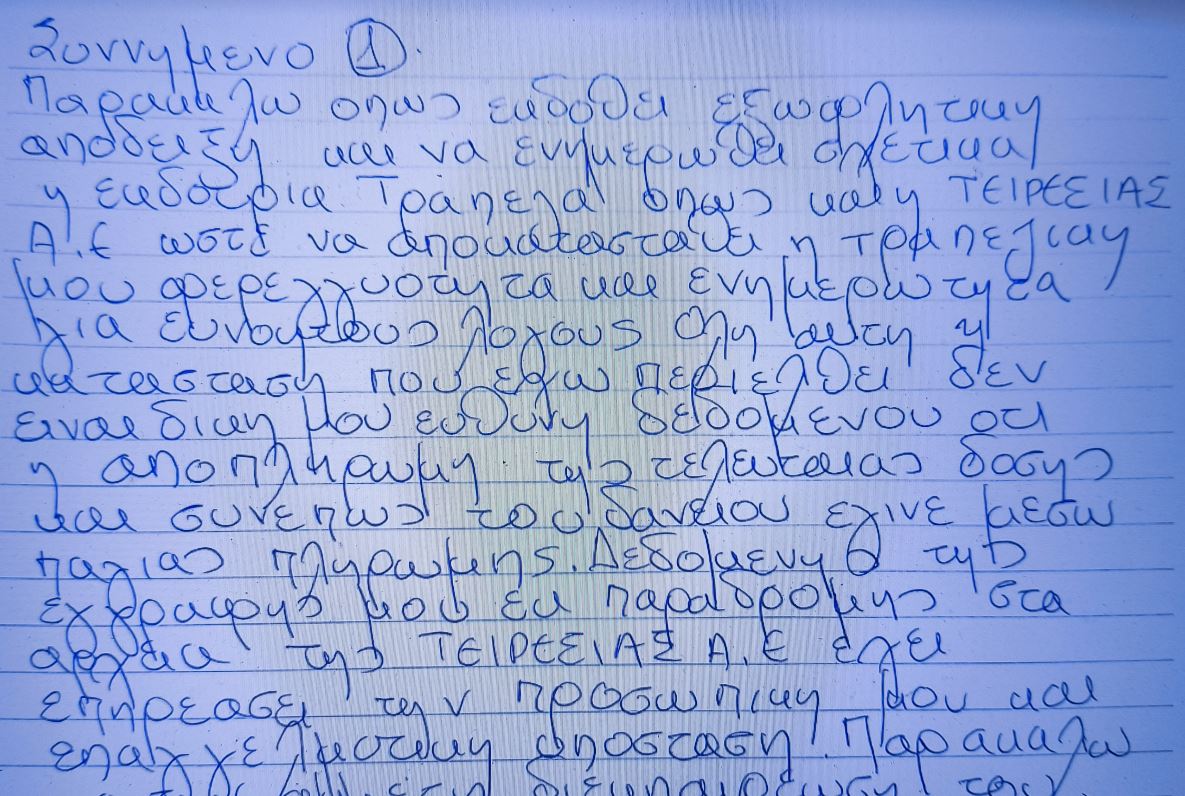 Συννημενο ①.
Παρακαλω οπως εκδοθει εξωφλητικη
αποδειξη και να ενημερωθει σχετικα
η εκδοτρια Τραπεζα οπως και η ΤΕΙΡΕΣΙΑΣ
Α.Ε ωστε να αποκατασταθει η τραπεζικη
μου φερεγγυοτητα και ενημεροτητα
για ευνοητους λογους ολη αυτη η
κατασταση που εχω περιελθει δεν
ειναι δικη μου ευθυνη δεδομενου οτι
η αποπληρωμη της τελευταιας δοσης
και συνεπως του δανειου εγινε μεσω
παγιας πληρωμης. Δεδομενης της
εγγραφης μου εκ παραδρομης στα
αρχεια της ΤΕΙΡΕΣΙΑΣ Α.Ε εχει
επηρεασει την προσωπικη μου και
επαγγελματικη αποσταση. Παρακαλω
στη διεκπαιρεωση του